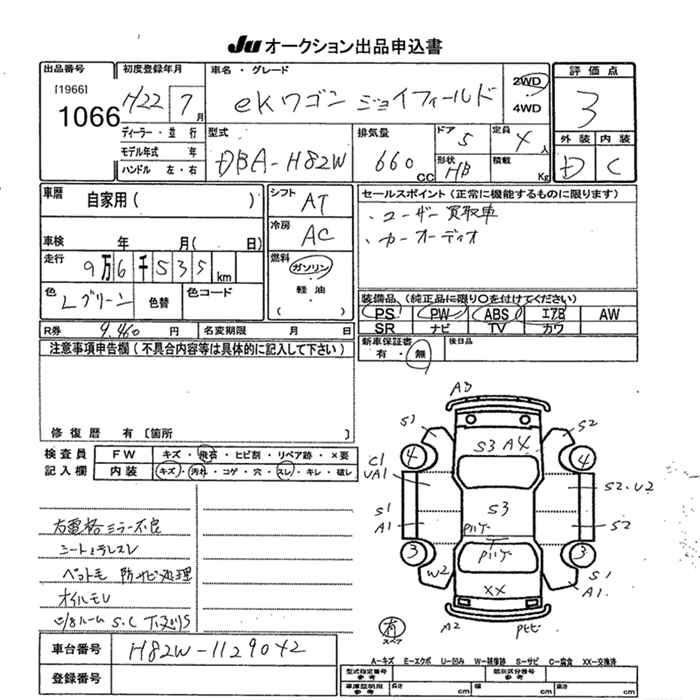 JU オークション出品申込書
出品番号
[1966]
1066
初度登録年月
H22 7月
車名・グレード
eKワゴン ジョイフィールド
2WD
4WD
評価点
3
外装 内装
D C
ディーラー・並行
モデル年式 年
ハンドル 左・右
型式
DBA-H82W
排気量
660 CC
ドア
5
形状
HB
定員
4人
積載
Kg
車歴
自家用( )
車検 年 月( 日)
走行
9万6千535km
色
Lグリーン
色替
色コード
シフト
AT
冷房
AC
燃料
ガソリン
軽油
( )
セールスポイント(正常に機能するものに限ります)
、ユーザー買取車
、カーオーディオ
装備品(純正品に限り○を付けてください)
PS PW ABS エアB AW
SR ナビ TV カワ
R券 9,460円
名変期限 月 日
新車保証書
有・無
後日品
注意事項申告欄(不具合内容等は具体的に記入して下さい)
修復歴 有〔箇所 〕
検査員
記入欄
FW キズ・飛石・ヒビ割・リペア跡・×要
内装 キズ・汚れ・コゲ・穴・スレ・キレ・破レ
右電格ミラー不良
シートヨゴレスレ
ペット毛 防サビ処理
オイルモレ
S.C
車台番号
H82W-1129042
登録番号
A3
S1
S2
4
4
S3 A4
C1
UA1
S2・U2
S1
A1
S3
S2
3
3
W2
XX
S1
A1
A2
有
スペア
A-キズ E-エクボ U-凹み W-補修跡 S-サビ C-腐食 XX-交換済
型式指定番号
参考
類別区分番号
参考
車庫証明用
参考
長さ cm
幅 cm
高さ cm